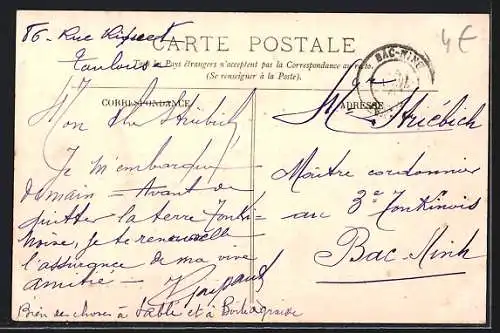 86 - Rue Riquet
Toulouse
CARTE POSTALE
Tous les Pays étrangers n'acceptent pas la Correspondance au recto.
(Se renseigner à la Poste).
4€
BAC-NINH
CORRESPONDANCE
ADRESSE
Mon cher Striebich
Je m'embarque
demain - Avant de
quitter la terre Tonki-
noise, je te renouvelle
l'assurance de ma vive
amitié -
Bien de choses à Sablé et à
Mr Striébich
Maître cordonnier
au 3e Tonkinois
Bac-Ninh